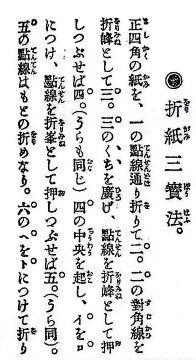 ◉折紙三寶法。
正四角の紙を、一の點線通り折りて二。二の對角線を
折峰として三。三のくちを廣げ、點線を折峰として押
しつぶせば四。(うらも同じ) 四の中央を起し、イをロ
につけ、點線を折峰として押しつぶせば五。(うら同)。
五の點線はもとの折めなり。六のヘをトにつけて折り